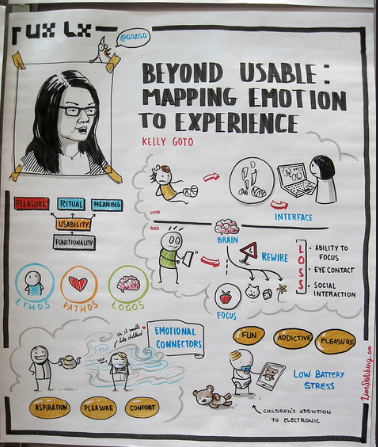 UX LX
@GO2GO
BEYOND USABLE:
MAPPING EMOTION
TO EXPERIENCE
KELLY GOTO
PLEASURE RITUAL MEANING
USABILITY
FUNCTIONALITY
ETHOS PATHOS LOGOS
GOOD
INTERFACE
BAD
BRAIN
REWIRE
FOCUS
LOSS
• ABILITY TO
FOCUS
• EYE CONTACT
• SOCIAL
INTERACTION
EMOTIONAL
CONNECTORS
ASPIRATION PLEASURE COMFORT
FUN ADDICTIVE PLEASURE
LOW BATTERY
STRESS
CHILDREN'S ADDICTION
TO ELECTRONIC